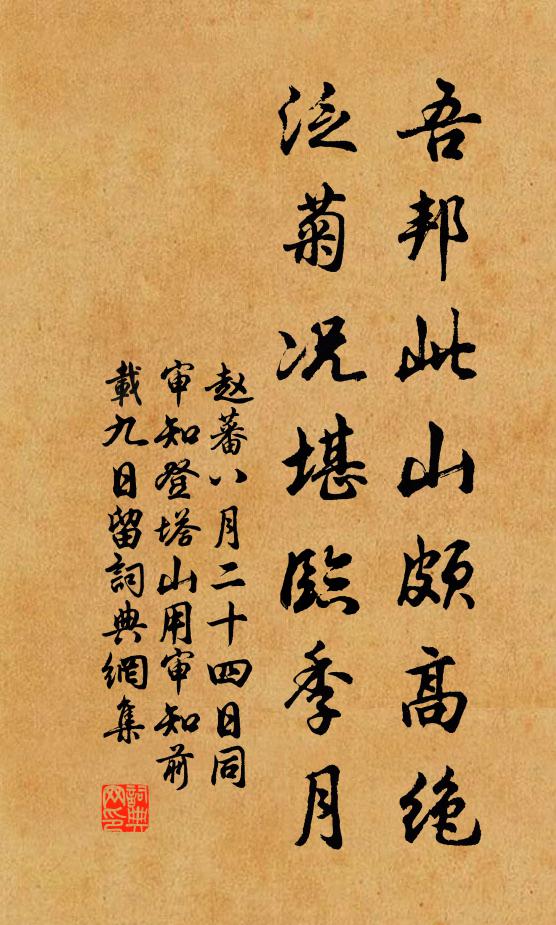 吾邦此山頗高绝
泛菊况堪臨季月
赵蕃八月二十四日同
审知登塔山用审知前
載九日留詞典網集
詞典
网印